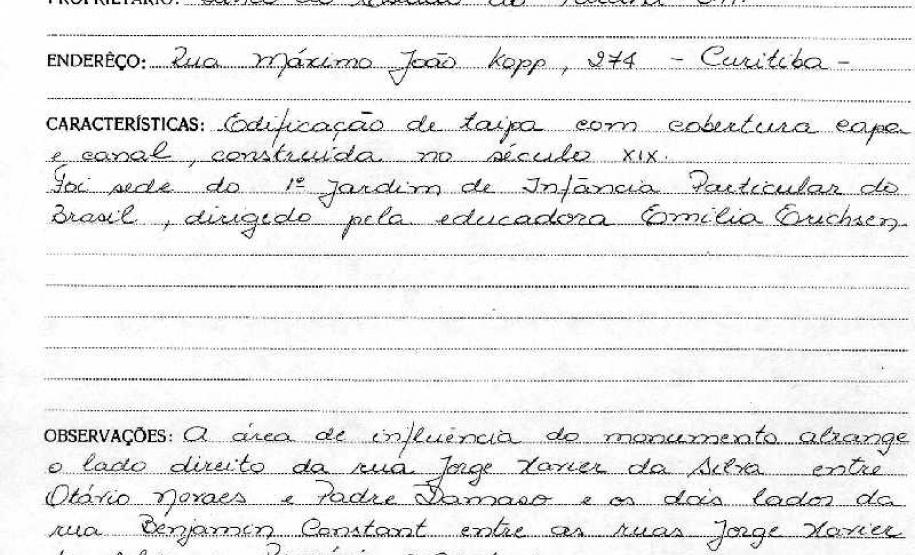 PROPRIETÁRIO: Banco do Estado do Paraná S.A.
ENDERÊÇO: Rua Máximo João Kopp, 274 - Curitiba -
CARACTERÍSTICAS: Edificação de taipa com cobertura capa
e canal, construída no século XIX.
Foi sede do 1º Jardim de Infância Particular do
Brasil, dirigido pela educadora Emília Erichsen
OBSERVAÇÕES: A área de influência do monumento abrange
o lado direito da rua Jorge Xavier da Silva entre
Otávio Novaes e Padre Damaso e os dois lados da
rua Benjamin Constant entre as ruas Jorge Xavier